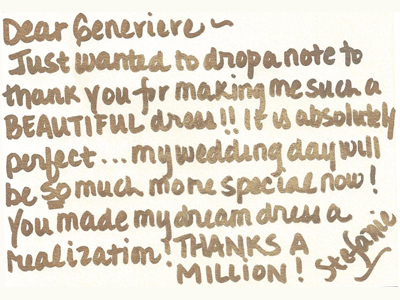 Dear Genevieve ~
Just wanted to drop a note to
thank you for making me such a
BEAUTIFUL dress!! It is absolutely
perfect... my wedding day will
be so much more special now!
You made my dream dress a
realization! THANKS A
MILLION! Stefanie